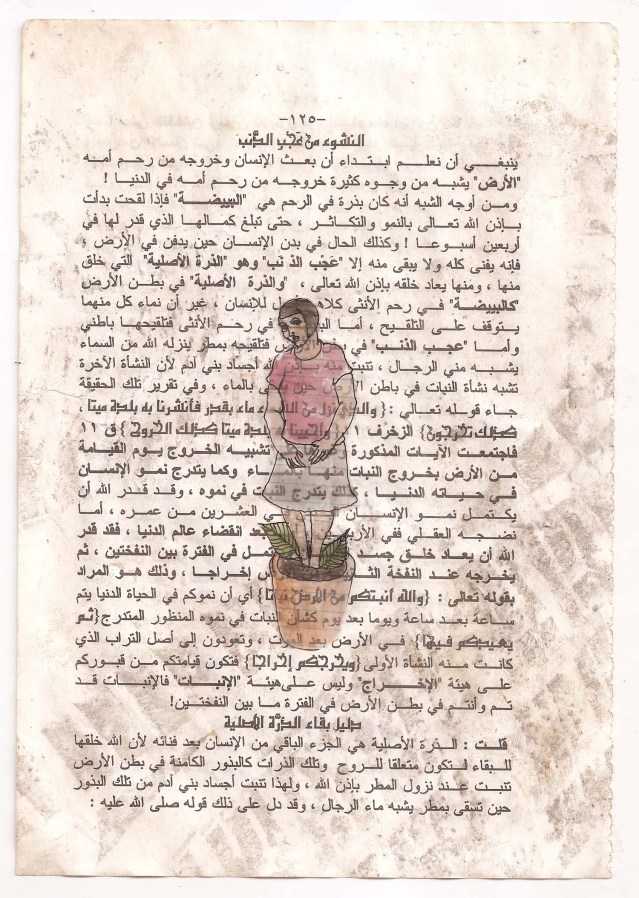 -١٢٥-
النشوء من عَجْبِ الذَّنب
ينبغي أن نعلم ابتداء أن بعث الإنسان وخروجه من رحم أمه
"الأرض" يشبه من وجوه كثيرة خروجه من رحم أمه في الدنيا !
ومن أوجه الشبه أنه كان بذرة في الرحم هي "البييضة" فإذا لقحت بدأت
بإذن الله تعالى بالنمو والتكاثر ، حتى تبلغ كمالها الذي قدر لها في
أربعين أسبوعا ! وكذلك الحال في بدن الإنسان حين يدفن في الأرض ،
فإنه يفنى كله ولا يبقى منه إلا "عَجْب الذنب" وهو "الذرة الأصلية" التي خلق
منها ، ومنها يعاد خلقه بإذن الله تعالى ، "والذرة الأصلية" في بطن الأرض
"كالبييضة" في رحم الأنثى كلاهما للإنسان ، غير أن نماء كل منهما
يتوقف على التلقيح ، أما في رحم الأنثى فتلقيحها باطني
وأما "عجب الذنب" في فتلقيحه بمطر ينزله الله من السماء
يشبه مني الرجال ، تنبت منه بإذن الله أجساد بني آدم لأن النشأة الآخرة
تشبه نشأة النبات في باطن حين بالماء ، وفي تقرير تلك الحقيقة
جاء قوله تعالى :{ والذي نزل من السماء ماء بقدر فأنشرنا به بلدة ميتا ،
كذلك تخرجون} الزخرف ١١ وأحيينا به بلدة ميتا كذلك الخروج } ق ١١
فاجتمعت الآيات المذكورة تشبيه الخروج يوم القيامة
من الأرض بخروج النبات منها وكما يتدرج نمو الإنسان
في حياته الدنيا ، كذلك يتدرج النبات في نموه ، وقد قدر الله أن
يكتمل نمو الإنسان في العشرين من عمره ، أما
نضجه العقلي ففي بعد انقضاء عالم الدنيا ، فقد قدر
الله أن يعاد خلق جسد في الفترة بين النفختين ، ثم
يخرجه عند النفخة إخراجا ، وذلك هو المراد
بقوله تعالى : {والله أنبتكم من الأرض نباتا} أي أن نموكم في الحياة الدنيا يتم
ساعة بعد ساعة ويوما بعد يوم كشأن النبات في نموه المنظور المتدرج {ثم
يعيدكم فيها} في الأرض بعد الموت ، وتعودون إلى أصل التراب الذي
كانت منه النشأة الأولى {ويخرجكم إخراجا} فتكون قيامتكم من قبوركم
على هيئة "الإخراج" وليس على هيئة "الإنبات" فالإنبات قد
تم وأنتم في بطن الأرض في الفترة ما بين النفختين!
دليل بقاء الذرّة الأصلية
قلت : الذرة الأصلية هي الجزء الباقي من الإنسان بعد فنائه لأن الله خلقها
للبقاء لتكون متعلقا للروح وتلك الذرات كالبذور الكامنة في بطن الأرض
تنبت عند نزول المطر بإذن الله ، ولهذا تنبت أجساد بني آدم من تلك البذور
حين تسقى بمطر يشبه ماء الرجال ، وقد دل على ذلك قوله صلى الله عليه :